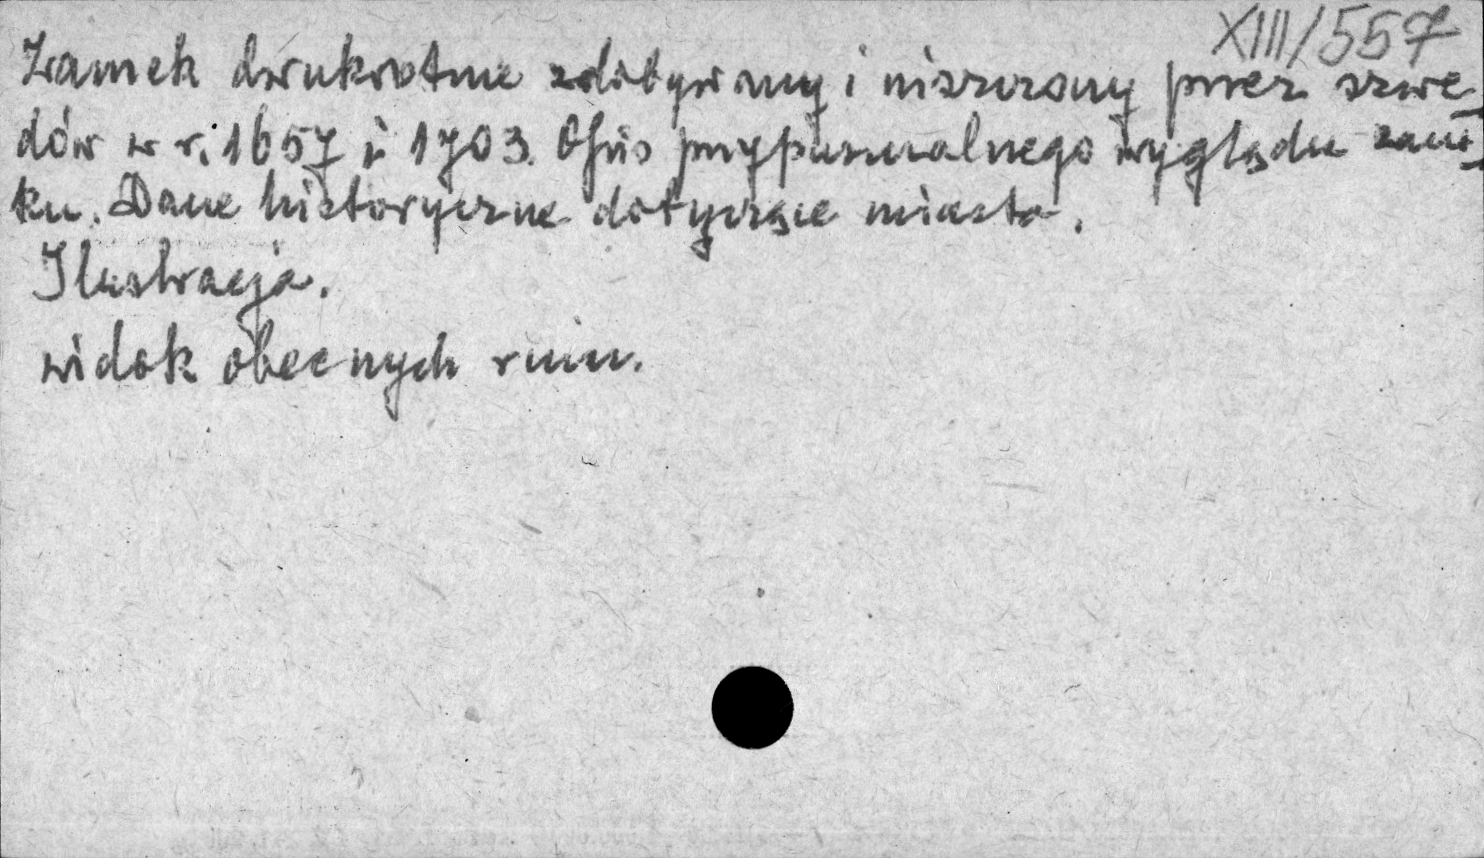 XIII/557
Zamek dwukrotnie zdobywany i niszczony przez szwe-
dów w r. 1657 i 1703. Opis przypuszczalnego wyglądu zam-
ku. Dane historyczne dotyczące miasta.
Ilustracja.
widok obecnych ruin.